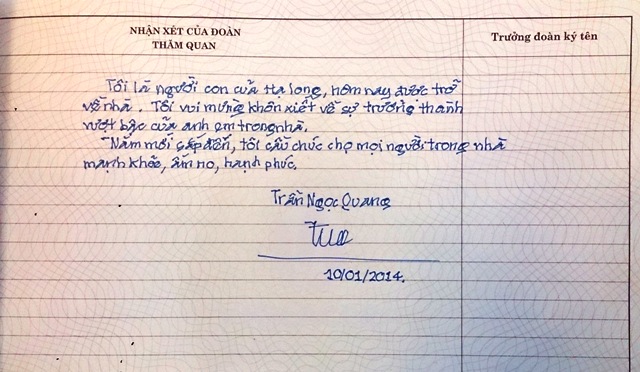 NHẬN XÉT CỦA ĐOÀN
THĂM QUAN
Trưởng đoàn ký tên
Tôi là người con của Hạ Long, hôm nay được trở
về nhà. Tôi vui mừng khôn xiết về sự trưởng thành
vượt bậc của anh em trong nhà.
Năm mới sắp đến, tôi cầu chúc cho mọi người trong nhà
mạnh khỏe, ấm no, hạnh phúc.
Trần Ngọc Quang
10/01/2014.